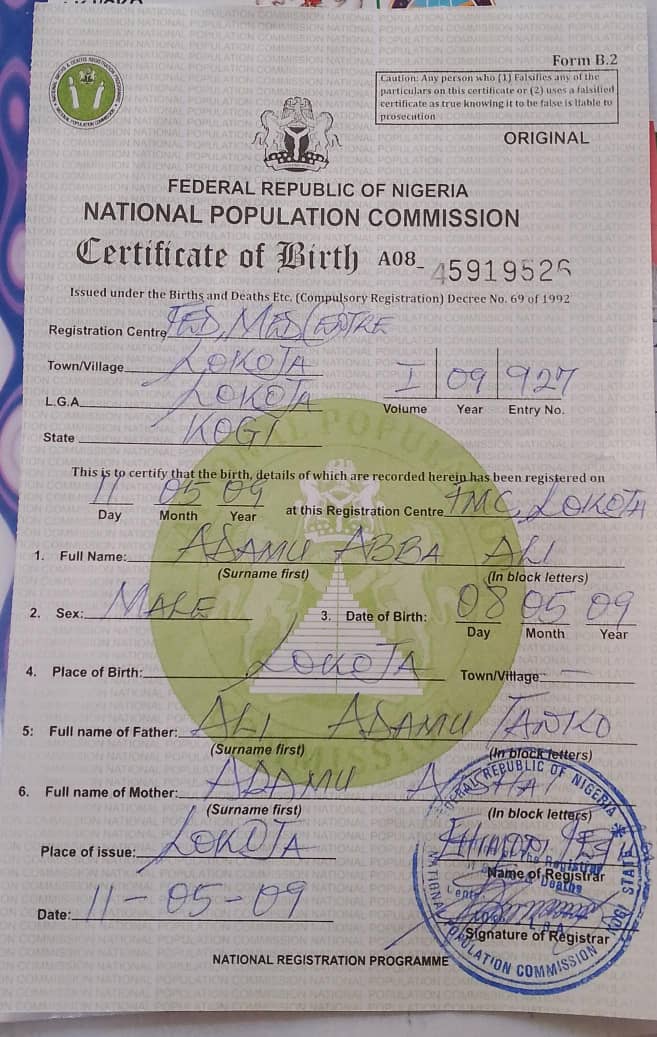 Form B.2
Caution: Any person who (1) Falsifies any of the
particulars on this certificate or (2) uses a falsified
certificate as true knowing it to be false is liable to
prosecution
ORIGINAL
FEDERAL REPUBLIC OF NIGERIA
NATIONAL POPULATION COMMISSION
Certificate of Birth A08- 45919526
Issued under the Births and Deaths Etc. (Compulsory Registration) Decree No. 69 of 1992
Registration Centre FED. MED CENTRE
Town/Village LOKOJA
L.G.A. LOKOJA
I 09 927
Volume Year Entry No.
State KOGI
This is to certify that the birth, details of which are recorded herein has been registered on
11 05 09 at this Registration Centre FMC, LOKOJA
Day Month Year
1. Full Name: ADAMU ABBA ALI
(Surname first) (In block letters)
2. Sex: MALE 3. Date of Birth: 08 05 09
Day Month Year
4. Place of Birth: LOKOJA Town/Village —
5: Full name of Father: ALI ADAMU TANKO
(Surname first) (In block letters)
6. Full name of Mother: ADAMU
(Surname first) (In block letters)
Place of issue: LOKOJA
Name of Registrar
Date: 11-05-09
Signature of Registrar
FEDERAL REPUBLIC OF NIGERIA
NATIONAL POPULATION COMMISSION
KOGI STATE
NATIONAL REGISTRATION PROGRAMME